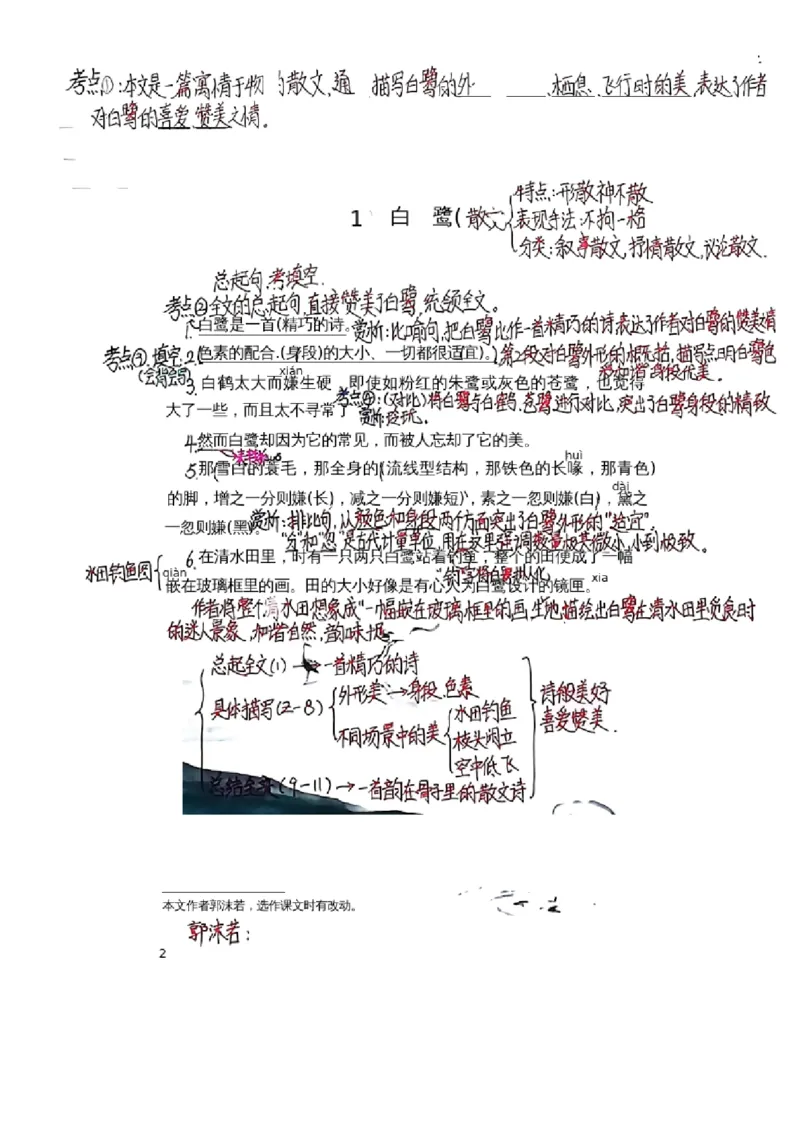 考点①:本文是一篇寓情于物 的散文,通 描写白鹭的外 栖息、飞行时的美,表达了作者
对白鹭的喜爱、赞美之情。
特点:形散神不散
1 白 鹭(散文 表现手法:不拘一格
分类:叙事散文,抒情散文,议论散文.
总起句,考填空.
考点②全文的总起句,直接赞美了白鹭,统领全文。
1.白鹭是一首(精巧)的诗。赏析:比喻句,把白鹭比作一首精巧的诗表达了作者对白鹭的赞美情
考点③ 填空.2.(色素的配合.(身段)的大小、一切都很适宜)。第2段对白鹭外形的概括描写点明白鹭色
(会背会写) xián 身段优美.
3.白鹤太大而嫌生硬,即使如粉红的朱鹭或灰色的苍鹭,也觉得
考点④:(对比)将白鹭与白鹤、苍鹭进行对比,突出了白鹭身段的精致
大了一些,而且太不寻常了
4.然而白鹭却因为它的常见,而被人忘却了它的美。
huì
5.那(雪白的蓑毛,那全身的(流线型结构,那铁色的长喙,那青色)
dài
的脚,增之一分则嫌(长),减之一分则嫌短),素之一忽则嫌(白),黛之
一忽则嫌(黑)。赏析:排比句,从颜色和身段两个方面突出了白鹭外形的"适宜".
"分"和"忽"是古代计量单位,用在这里强调数量极其微小,小到极致。
6.在清水田里,时有一只两只白鹭站着钓鱼,整个的田便成了一幅
水田钓鱼图 qiàn
嵌在玻璃框里的画。田的大小好像是有心人为白鹭设计的镜匣。
xia
作者将整个清水田想象成"一幅嵌在玻璃框里的画,生动地描绘出白鹭在清水田里觅食时
的迷人景象,和谐自然,韵味
总起全文(1)→一首精巧的诗
具体描写(2-8) 外形美:→身段、色素
不同场景中的美 水田钓鱼
枝头闲立
空中低飞
诗般美好
喜爱赞美.
总结全文(9-11)→一首韵在骨子里的散文诗
本文作者郭沫若,选作课文时有改动。
郭沫若:
2